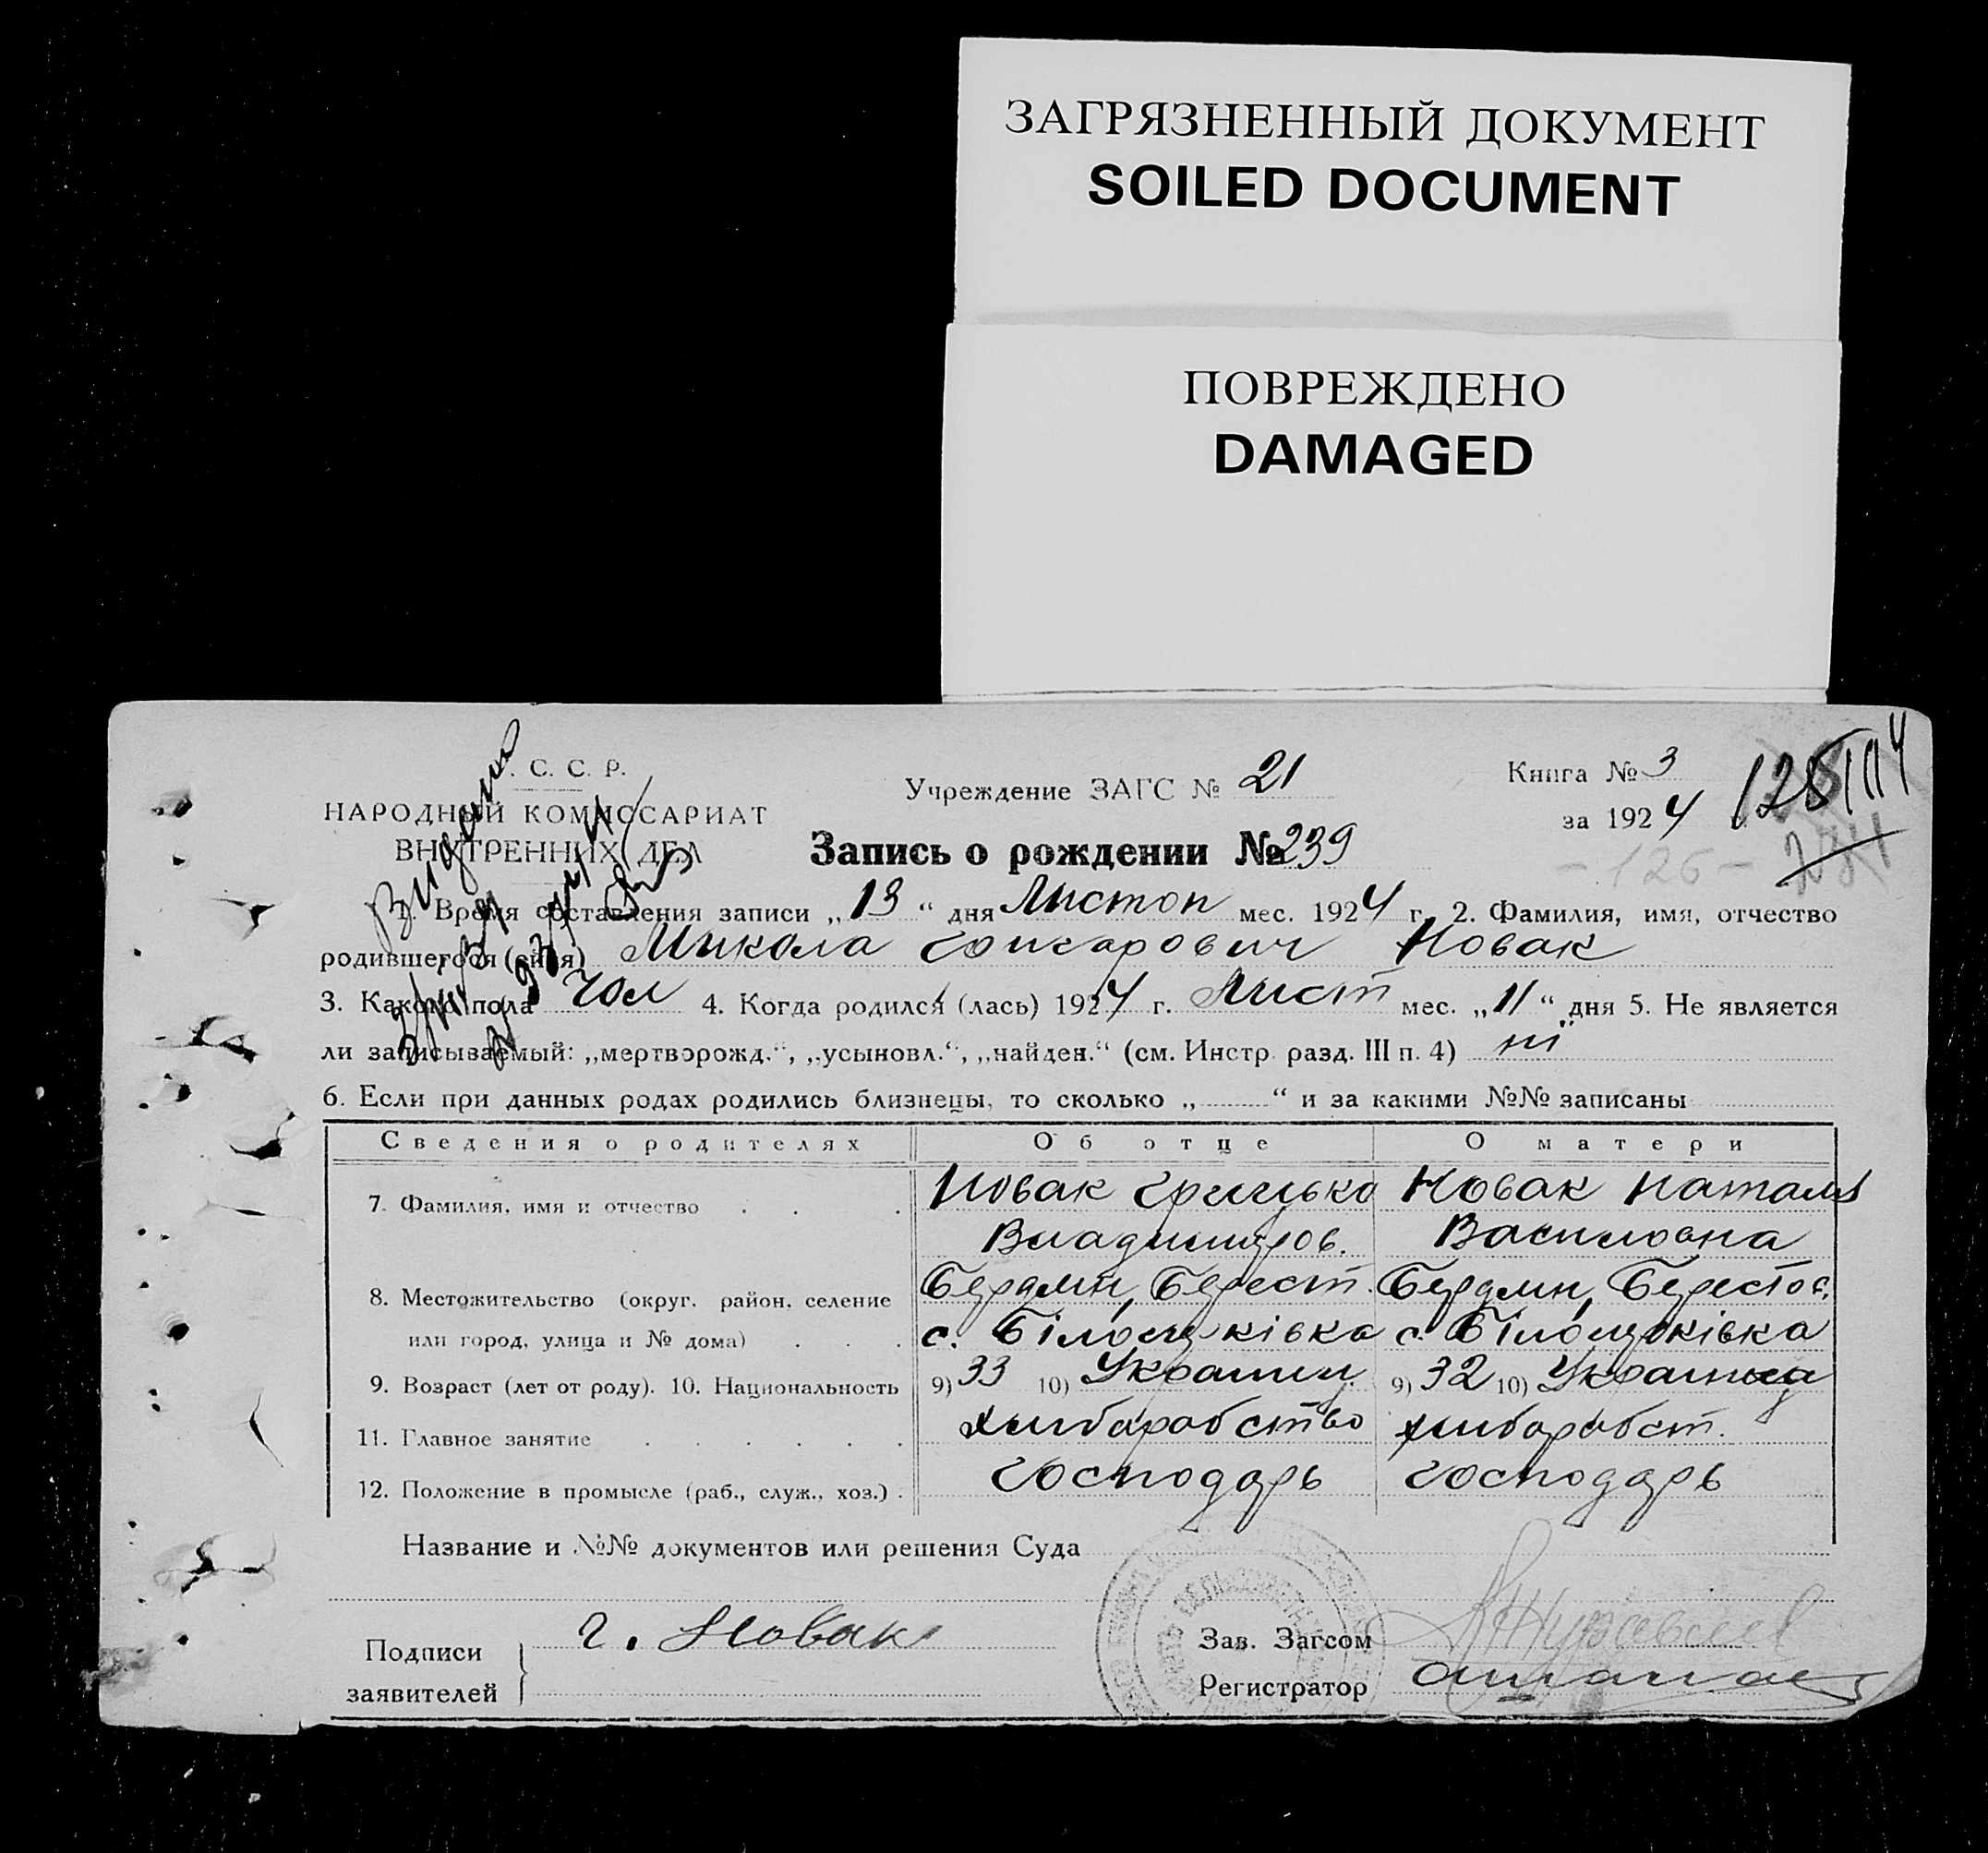 ЗАГРЯЗНЕННЫЙ ДОКУМЕНТ
SOILED DOCUMENT
ПОВРЕЖДЕНО
DAMAGED
. С. С. Р.
НАРОДНЫЙ КОМИССАРИАТ
ВНУТРЕННИХ ДЕЛ
Учреждение ЗАГС № 21
Книга № 3
за 1924
Запись о рождении № 239
- 126 -
1. Время составления записи „13“ дня Листоп мес. 1924 г. 2. Фамилия, имя, отчество
родившегося (ейся) Микола Новак
3. Какого пола Чол 4. Когда родился (лась) 1924 г. Лист мес. „11“ дня 5. Не является
ли записываемый: „мертворожд.“, „усыновл.“, „найден.“ (см. Инстр. разд. III п. 4) ні
6. Если при данных родах родились близнецы, то сколько „ “ и за какими №№ записаны
Сведения о родителях Об отце О матери
7. Фамилия, имя и отчество Новак Грицько Новак Наталя
Владимиров. Василовна
8. Местожительство (округ, район, селение Бердян, Берест. Бердян, Берестов,
или город, улица и № дома) с. Білоцерківка с. Білоцерківка
9. Возраст (лет от роду). 10. Национальность 9) 33 10) Украинец 9) 32 10) Украинка
11. Главное занятие хлибаробство хлибаробст.
12. Положение в промысле (раб., служ., хоз.) Господарь Господарь
Название и №№ документов или решения Суда
Подписи
заявителей
Г. Новак
Зав. Загсом
Регистратор